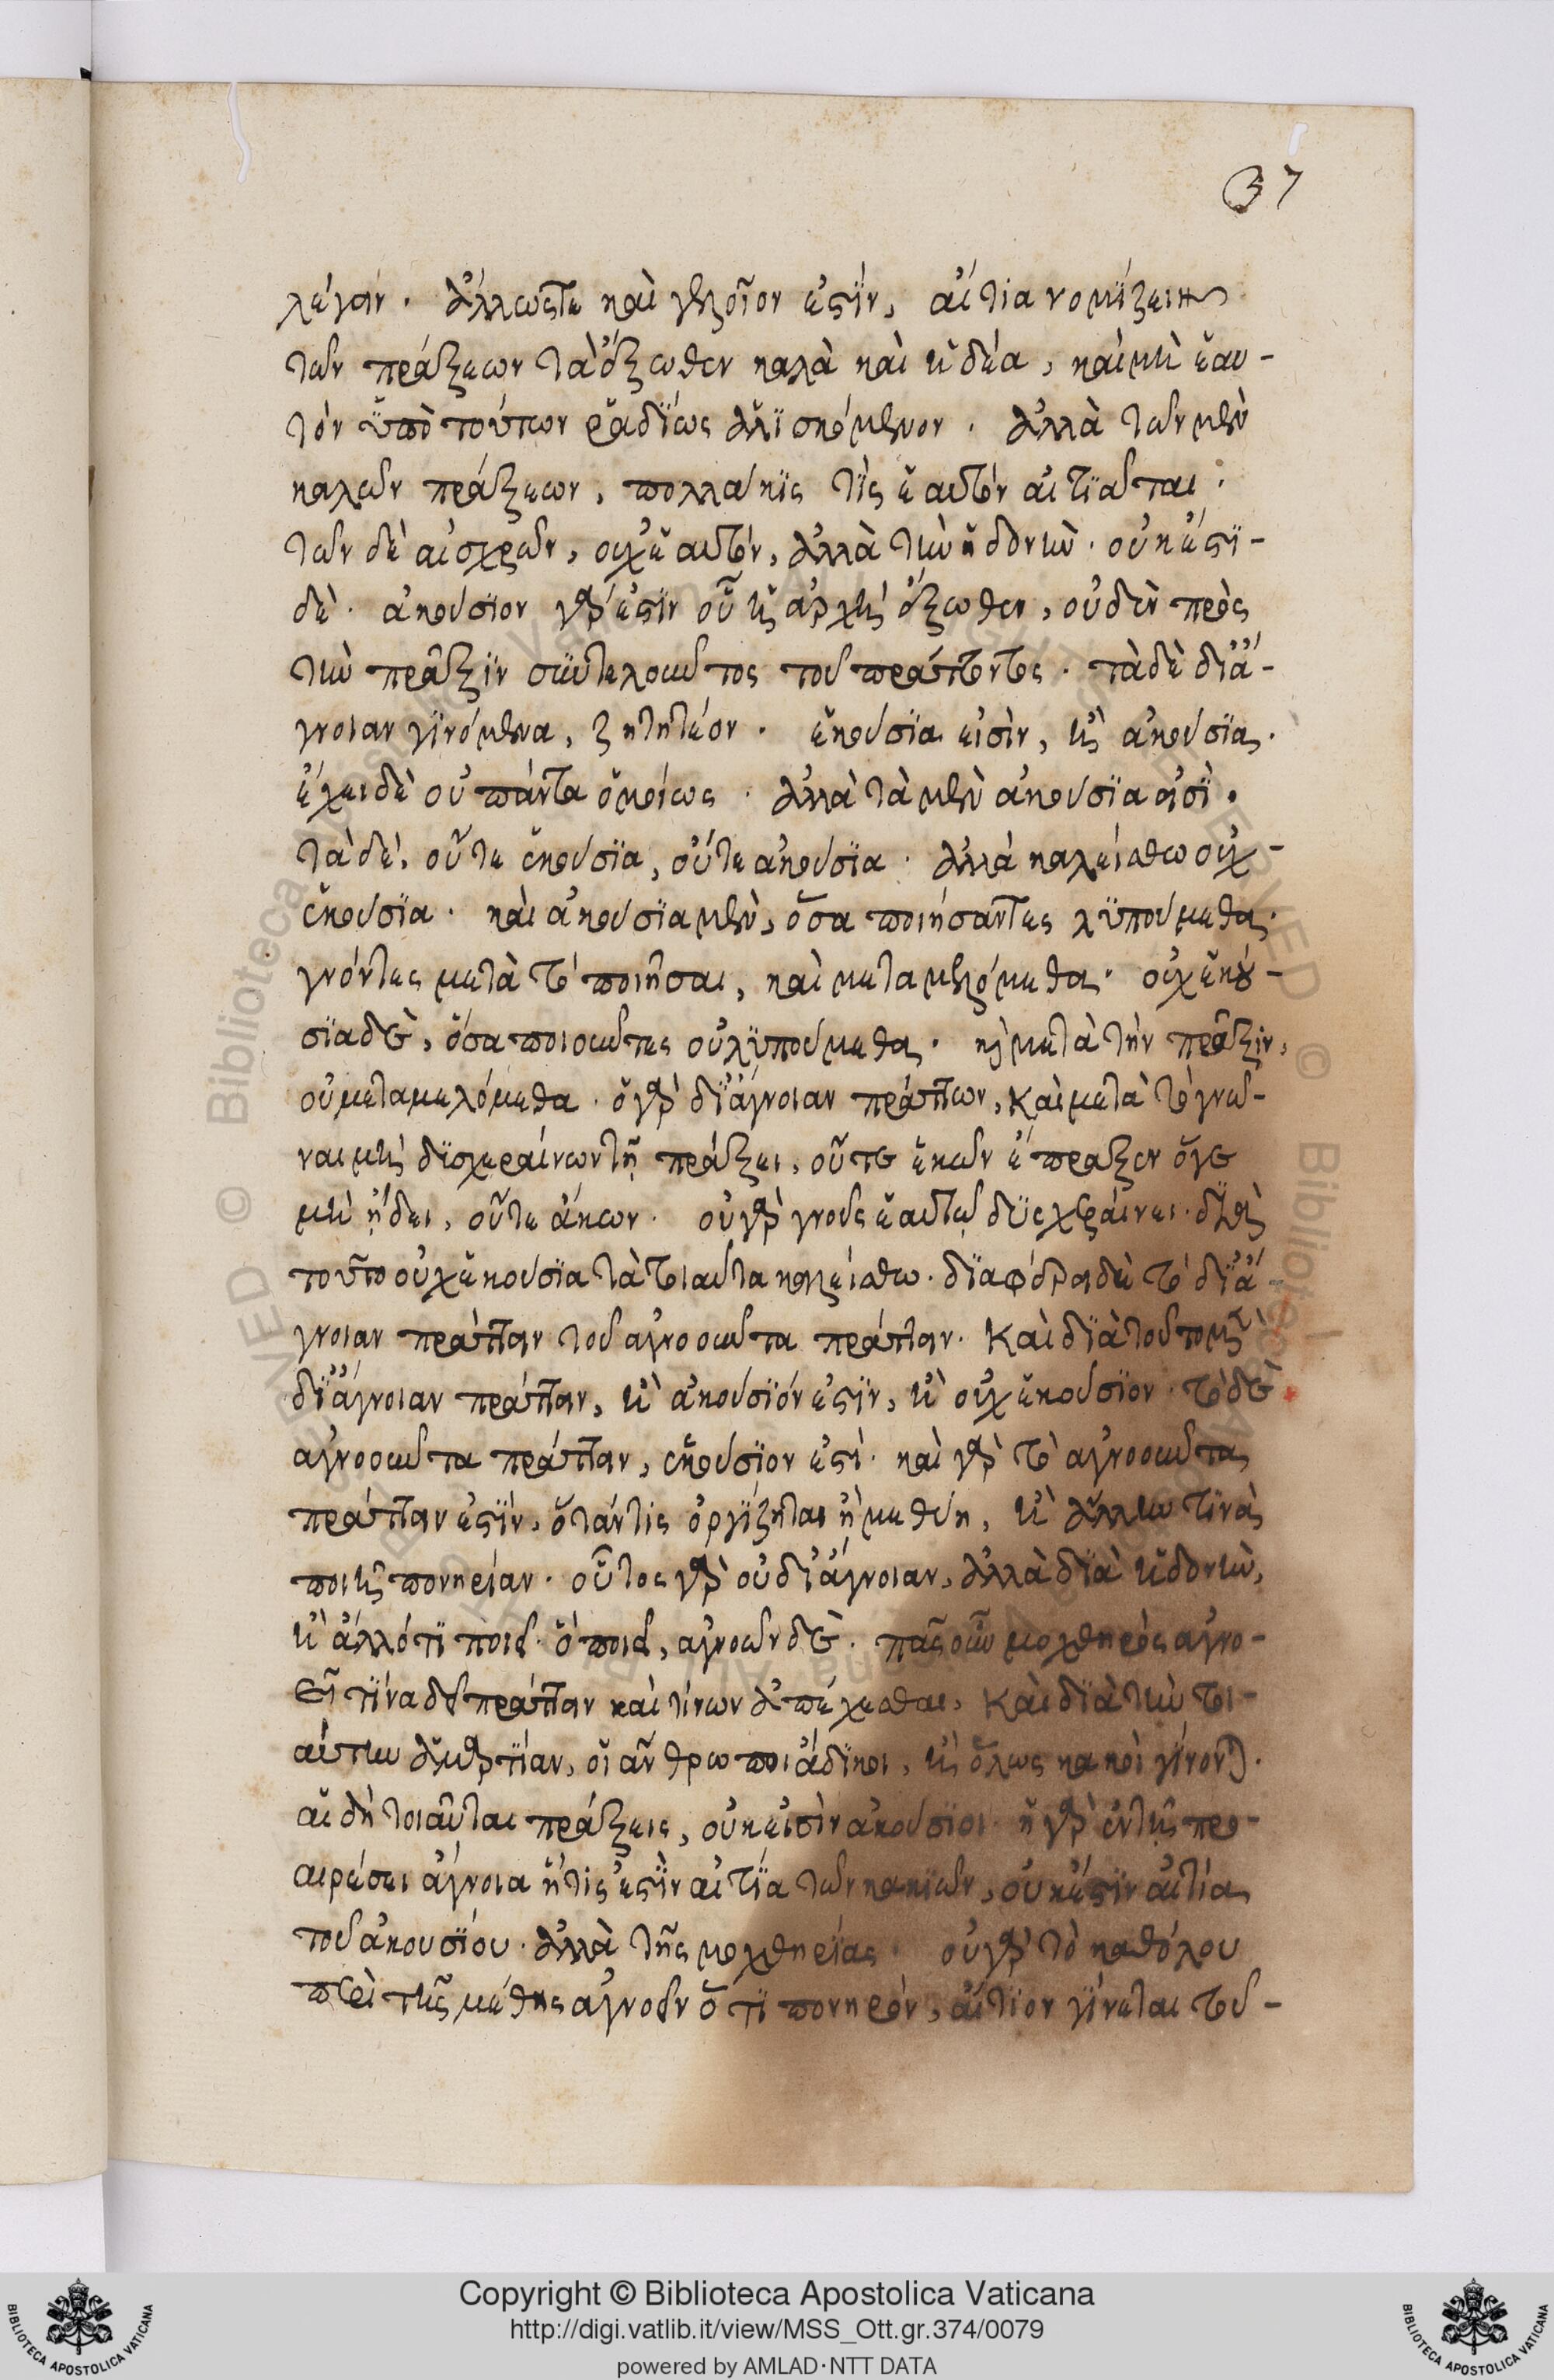 37
λέγειν. ἄλλως τε καὶ γελοῖον ἐστὶν, αἴτια νομίζειν
τῶν πράξεων τὰ ἔξωθεν καλὰ καὶ ἡδέα, καὶ μὴ ἑαυ-
τὸν ὑπὸ τούτων ῥαδίως ἁλισκόμενον. ἀλλὰ τῶν μὲν
καλῶν πράξεων, πολλάκις τίς ἑαυτὸν αἰτιᾶται.
τῶν δὲ αἰσχρῶν, οὐχ ἑαυτὸν, ἀλλὰ τὴν ἡδονὴν. οὐκ ἔστι-
δὲ. ἀκούσιον γάρ ἐστιν οὗ ἡ ἀρχὴ ἔξωθεν, οὐδὲν πρὸς
τὴν πρᾶξιν συντελοῦντος τοῦ πράττοντος. τὰ δὲ δι' ἄ-
γνοιαν γινόμενα, ζητητέον. ἑκούσια εἰσὶν, ἢ ἀκούσια.
ἔχει δὲ οὐ πάντα ὁμοίως. ἀλλὰ τὰ μὲν ἀκούσια εἰσὶ.
τὰ δὲ, οὔτε ἑκούσια, οὔτε ἀκούσια. ἀλλὰ καλείσθω οὐχ-
ἑκούσια. καὶ ἀκούσια μὲν, ὅσα ποιήσαντες λυπούμεθα.
γνόντες μετὰ τὸ ποιῆσαι, καὶ μεταμελόμεθα. οὐχ ἑκού-
σια δὲ, ὅσα ποιοῦντες οὐ λυπούμεθα. καὶ μετὰ τὴν πρᾶξιν,
οὐ μεταμελόμεθα. ὁ γὰρ δι' ἄγνοιαν πράττων, καὶ μετὰ τὸ γνῶ-
ναι μὴ δισχεραίνων τῇ πράξει, οὔτε ἑκὼν ἔπραξεν ὅγε
μὴ ᾔδει, οὔτε ἄκων. οὐ γὰρ γνοὺς ἑαυτῷ δυσχεραίνει. διὰ
τοῦτο οὐχ ἑκούσια τὰ τοιαῦτα καλείσθω. διαφέρει δὲ τὸ δι' ἄ-
γνοιαν πράττειν τοῦ ἀγνοοῦντα πράττειν. καὶ διὰ τοῦτο μὲν
δι' ἄγνοιαν πράττειν, ἢ ἀκούσιόν ἐστιν, ἢ οὐχ ἑκούσιον. τὸ δὲ
ἀγνοοῦντα πράττειν, ἑκούσιον ἐστί. καὶ γὰρ τὸ ἀγνοοῦντα
πράττειν ἐστίν, ὅταν τις ὀργίζηται ἢ μεθύῃ, ἢ ἄλλην τινὰ
ποιῇ πονηρίαν. οὗτος γὰρ οὐ δι' ἄγνοιαν, ἀλλὰ διὰ ἡδονὴν,
ἢ ἄλλό τι ποιεῖ ὃ ποιεῖ, ἀγνοῶν δὲ. πᾶς οὖν μοχθηρὸς ἀγνο-
εῖ τίνα δεῖ πράττειν καὶ τίνων ἀπέχεσθαι, καὶ διὰ τὴν τοι-
αύτην ἁμαρτίαν, οἱ ἄνθρωποι ἄδικοι, ἢ ὅλως κακοὶ γίνονται.
αἱ δὴ τοιαῦται πράξεις, οὐκ εἰσὶν ἀκούσιοι. ἡ γὰρ ἐν τῇ προ-
αιρέσει ἄγνοια ἥτις ἐστὶν αἰτία τῶν κακιῶν, οὐκ ἔστιν αἰτία
τοῦ ἀκουσίου. ἀλλὰ τῆς μοχθηρίας. οὐ γὰρ τὸ καθόλου
περὶ τῆς μέθης ἀγνοεῖν ὅτι πονηρόν, αἴτιον γίνεται τοῦ-
Copyright © Biblioteca Apostolica Vaticana
http://digi.vatlib.it/view/MSS_Ott.gr.374/0079
powered by AMLAD·NTT DATA